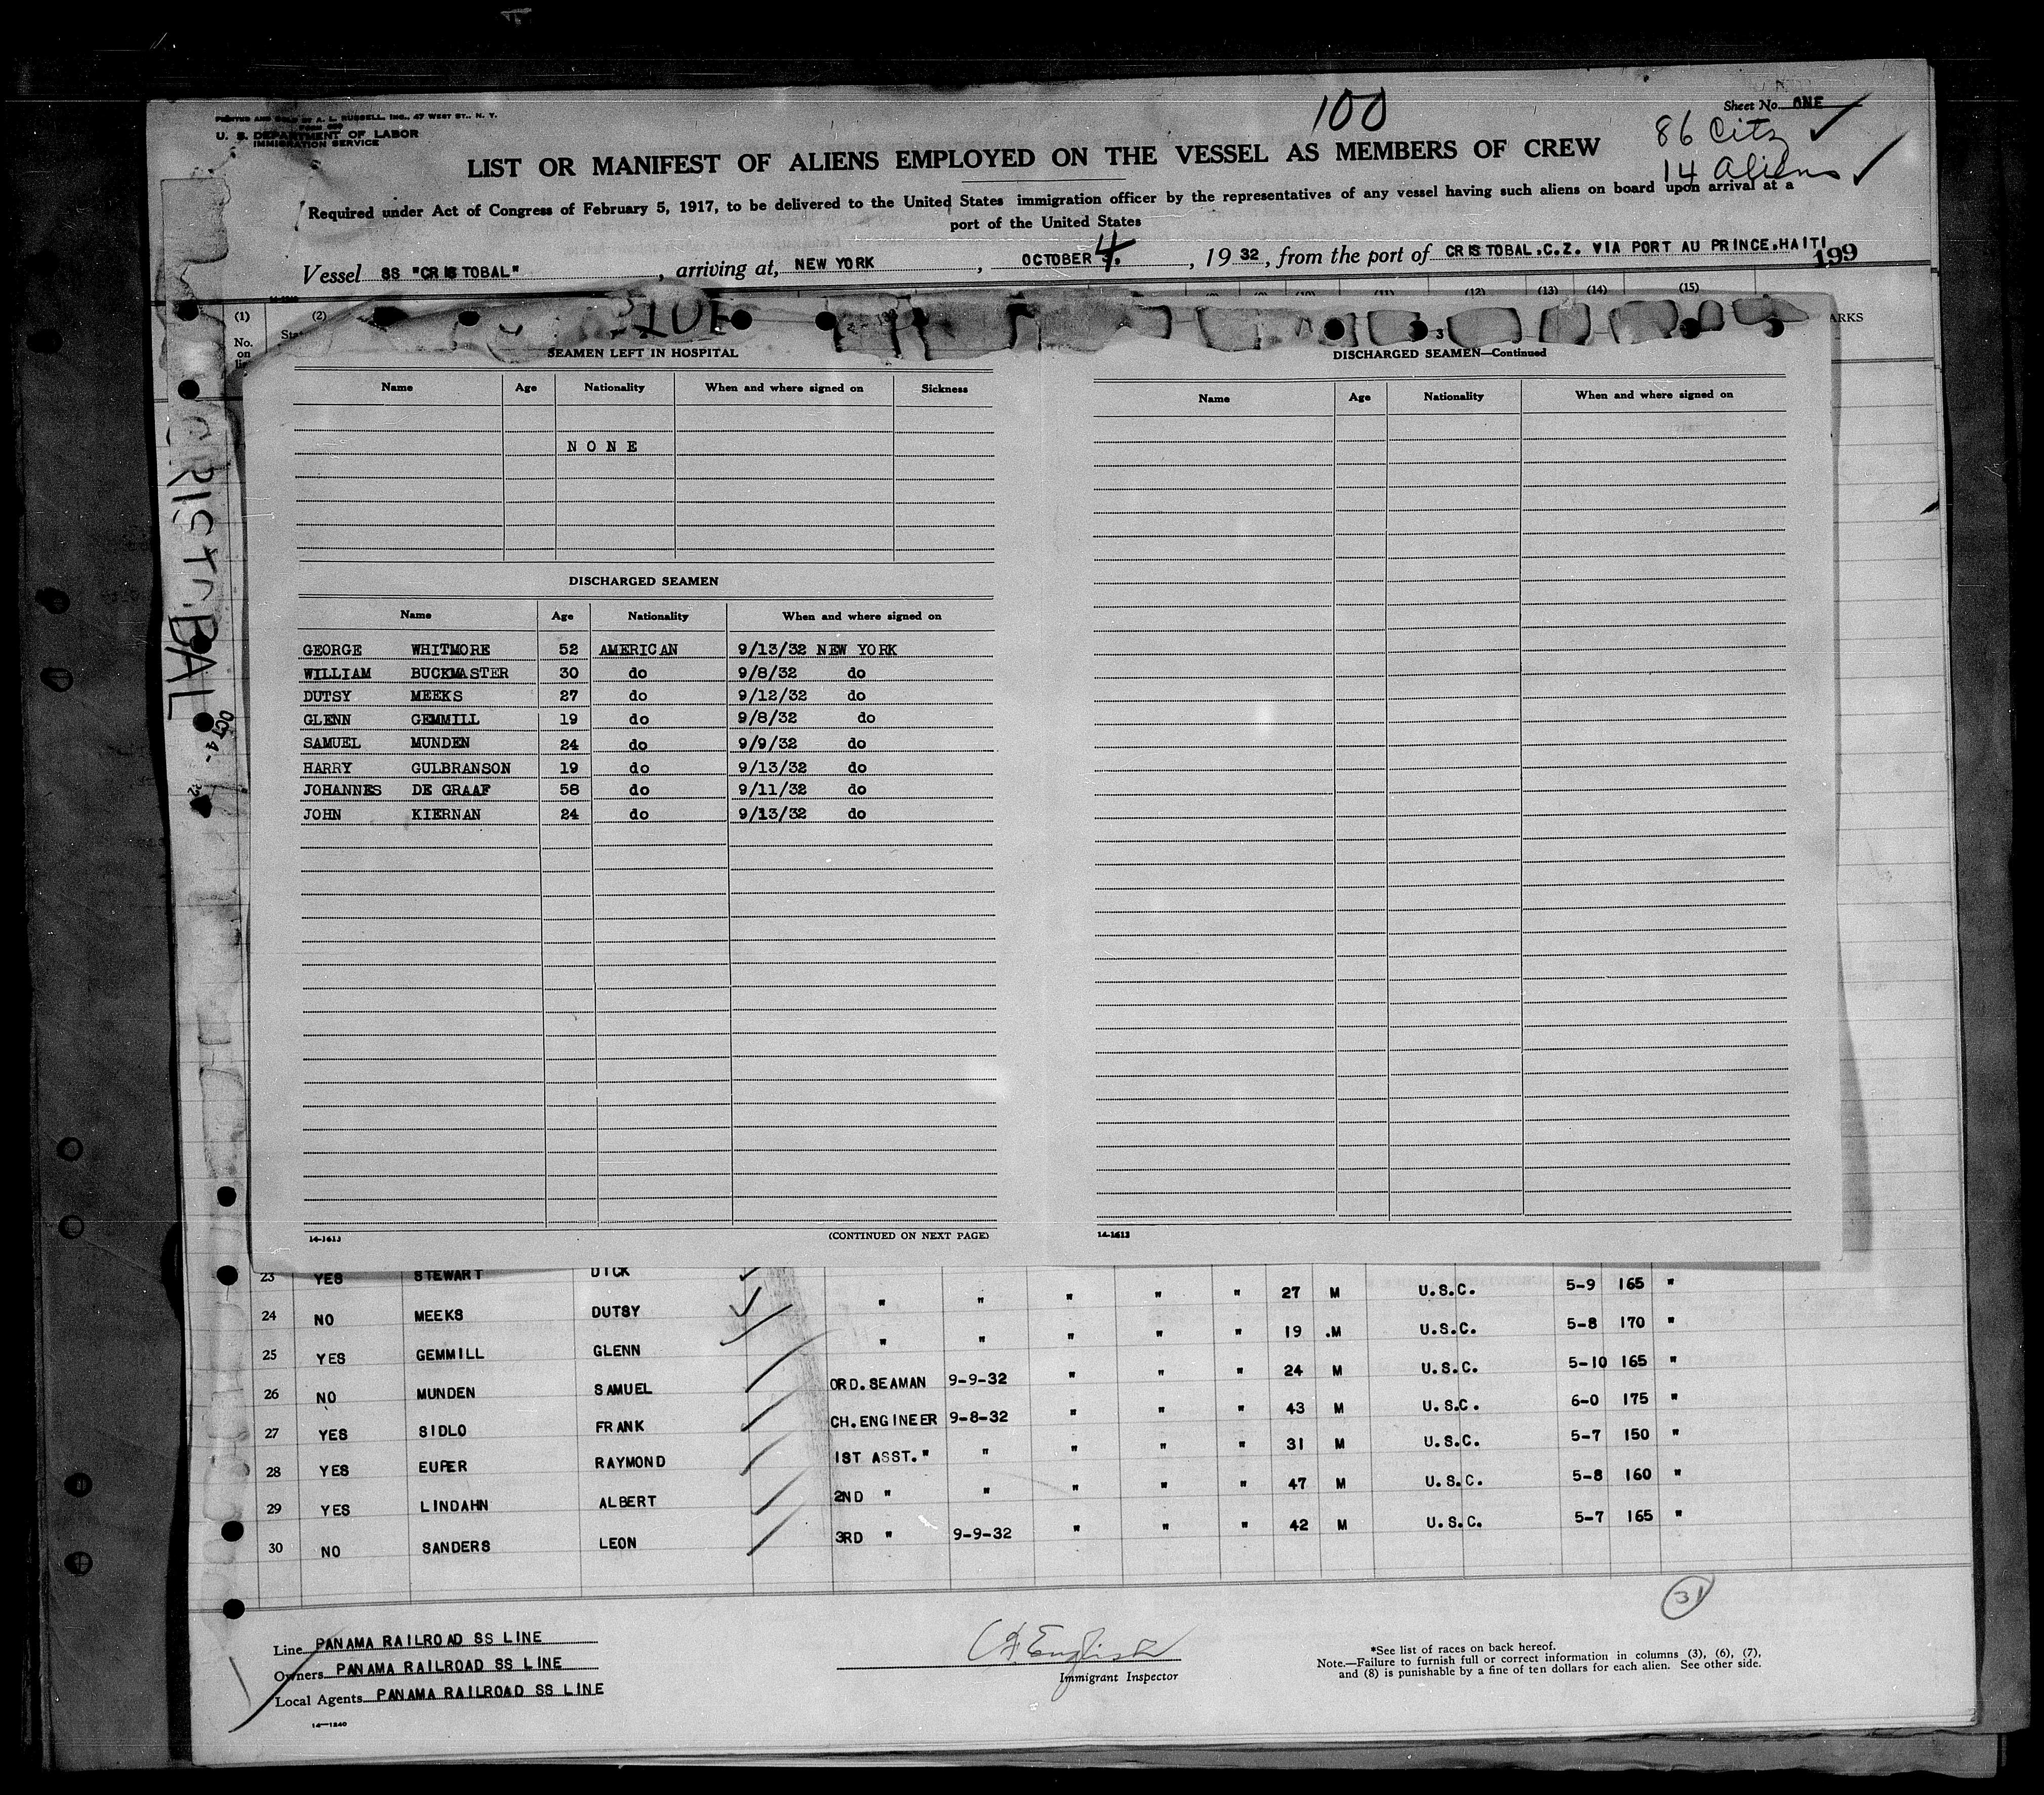 PRINTED AND SOLD BY A. L. RUSSELL, INC., 47 WEST ST., N. Y.
U. S. DEPARTMENT OF LABOR
IMMIGRATION SERVICE
100
Sheet No. ONE
86 Citz
14 Aliens
LIST OR MANIFEST OF ALIENS EMPLOYED ON THE VESSEL AS MEMBERS OF CREW
Required under Act of Congress of February 5, 1917, to be delivered to the United States immigration officer by the representatives of any vessel having such aliens on board upon arrival at a
port of the United States
Vessel SS "CRISTOBAL", arriving at, NEW YORK, OCTOBER 4, 1932, from the port of CRISTOBAL.C.Z. VIA PORT AU PRINCE.HAITI
199
(1) (2) (11) (12) (13) (14) (15)
No.
on
ARKS
CRISTOBAL
OCT 4-
SEAMEN LEFT IN HOSPITAL
Name Age Nationality When and where signed on Sickness
NONE
DISCHARGED SEAMEN
Name Age Nationality When and where signed on
GEORGE WHITMORE 52 AMERICAN 9/13/32 NEW YORK
WILLIAM BUCKMASTER 30 do 9/8/32 do
DUTSY MEEKS 27 do 9/12/32 do
GLENN GEMMILL 19 do 9/8/32 do
SAMUEL MUNDEN 24 do 9/9/32 do
HARRY GULBRANSON 19 do 9/13/32 do
JOHANNES DE GRAAF 58 do 9/11/32 do
JOHN KIERNAN 24 do 9/13/32 do
14-1613
(CONTINUED ON NEXT PAGE)
3
DISCHARGED SEAMEN—Continued
Name Age Nationality When and where signed on
14-1613
23 YES STEWART DICK
24 NO MEEKS DUTSY " " " " " 27 M U.S.C. 5-9 165 "
25 YES GEMMILL GLENN " " " " " 19 .M U.S.C. 5-8 170 "
26 NO MUNDEN SAMUEL ORD.SEAMAN 9-9-32 " " " 24 M U.S.C. 5-10 165 "
27 YES SIDLO FRANK CH.ENGINEER 9-8-32 " " " 43 M U.S.C. 6-0 175 "
28 YES EUPER RAYMOND 1ST ASST." " " " " 31 M U.S.C. 5-7 150 "
29 YES LINDAHN ALBERT 2ND " " " " " 47 M U.S.C. 5-8 160 "
30 NO SANDERS LEON 3RD " 9-9-32 " " " 42 M U.S.C. 5-7 165 "
31
Line PANAMA RAILROAD SS LINE
Owners PANAMA RAILROAD SS LINE
Local Agents PANAMA RAILROAD SS LINE
14-1240
English
Immigrant Inspector
*See list of races on back hereof.
Note.—Failure to furnish full or correct information in columns (3), (6), (7),
and (8) is punishable by a fine of ten dollars for each alien. See other side.